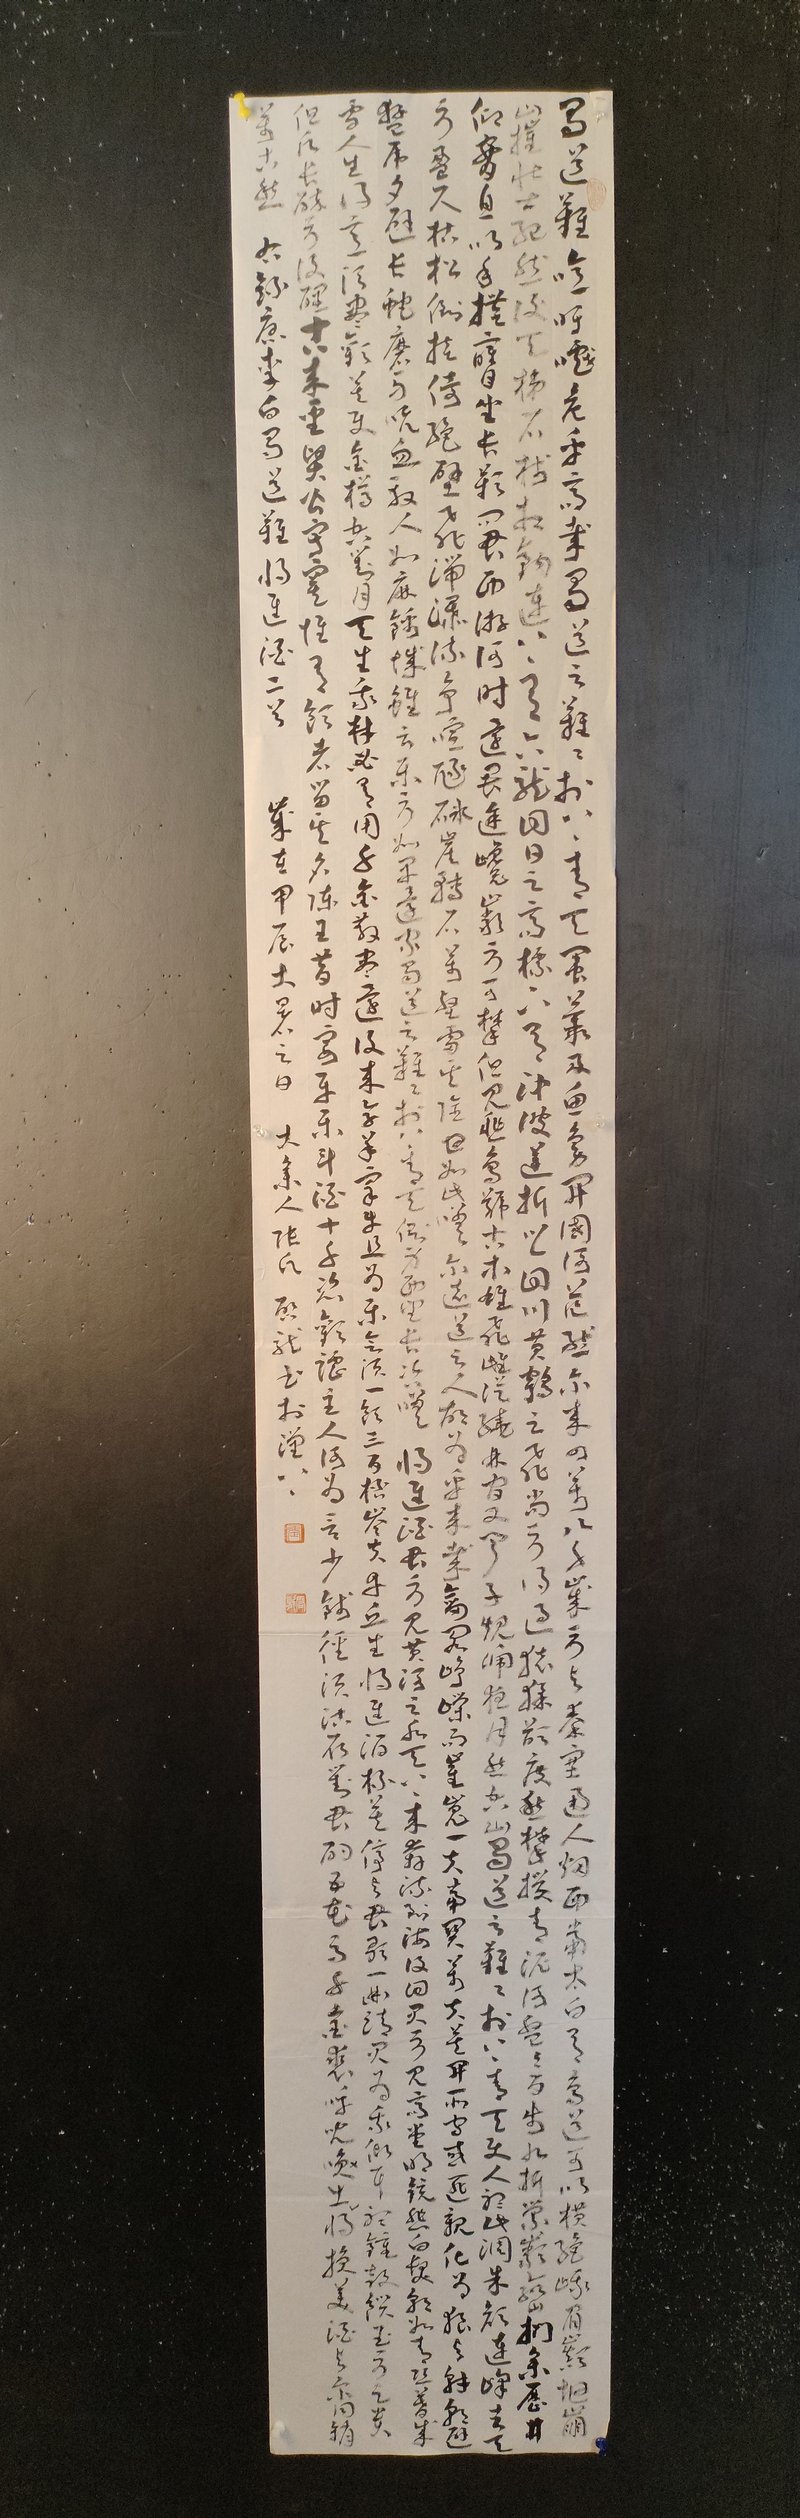 蜀道難噫吁嚱危乎高哉蜀道之難難於上青天蠶叢及魚鳧開國何茫然爾來四萬八千歲不與秦塞通人烟西當太白有鳥道可以橫絕峨眉巔地崩
山摧壯士死然後天梯石棧相鈎連上有六龍回日之高標下有沖波逆折之回川黃鶴之飛尚不得過猿猱欲度愁攀援青泥何盤盤百步九折縈巖巒捫參歷井
仰脅息以手撫膺坐長嘆問君西遊何時還畏途巉巖不可攀但見悲鳥號古木雄飛雌從繞林間又聞子規啼夜月愁空山蜀道之難難於上青天使人聽此凋朱顏連峰去天
不盈尺枯松倒挂倚絕壁飛湍瀑流爭喧豗砯崖轉石萬壑雷其險也如此嗟爾遠道之人胡為乎來哉劍閣崢嶸而崔嵬一夫當關萬夫莫開所守或匪親化為狼與豺朝避
猛虎夕避長蛇磨牙吮血殺人如麻錦城雖云樂不如早還家蜀道之難難於上青天側身西望長咨嗟 將進酒君不見黃河之水天上來奔流到海不復回君不見高堂明鏡悲白髮朝如青絲暮成
雪人生得意須盡歡莫使金樽空對月天生我材必有用千金散盡還復來烹羊宰牛且為樂會須一飲三百杯岑夫子丹丘生將進酒杯莫停與君歌一曲請君為我側耳聽鐘鼓饌玉不足貴
但願長醉不復醒古來聖賢皆寂寞惟有飲者留其名陳王昔時宴平樂斗酒十千恣歡謔主人何為言少錢徑須沽取對君酌五花馬千金裘呼兒喚出將換美酒與爾同銷
萬古愁 右錄唐李白蜀道難將進酒二首 歲在甲辰大暑之日 大梁人張氏 龍書於上